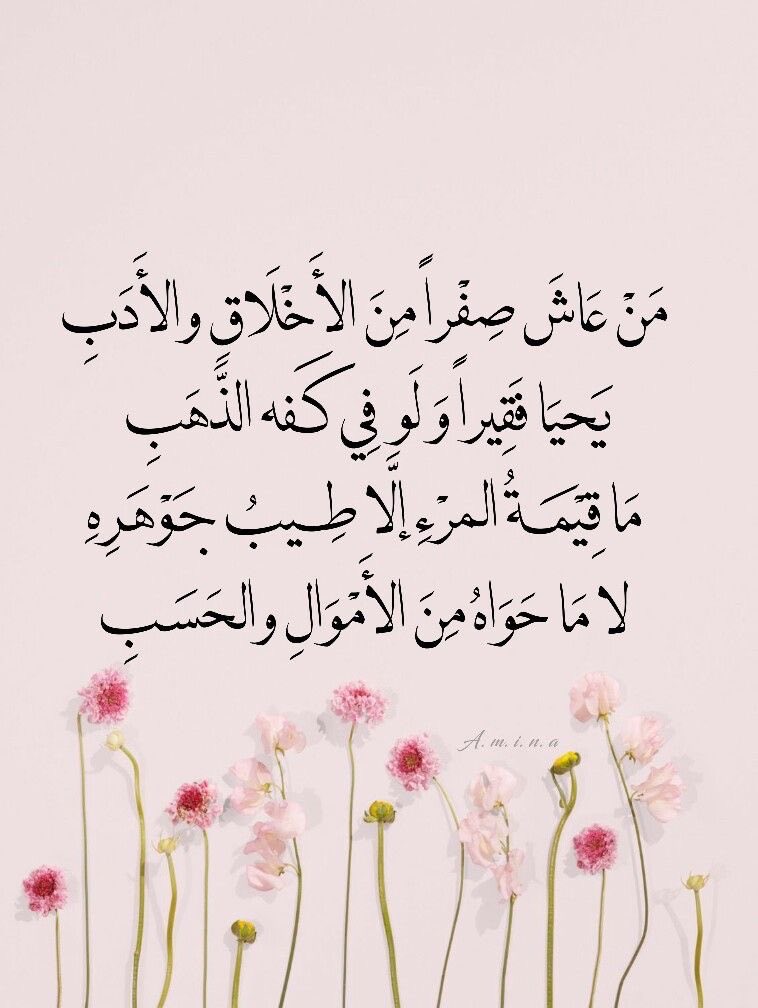 مَنْ عَاشَ صِفْراً مِنَ الأَخْلَاقِ والأَدَبِ
يَحيَا فَقِيراً وَلَو فِي كَفه الذَّهَبِ
مَا قِيْمَةُ المرْءِ إلَّا طِيبُ جَوْهَرِهِ
لا مَا حَوَاهُ مِنَ الأَمْوَالِ والحَسَبِ
A.m.i.n.a